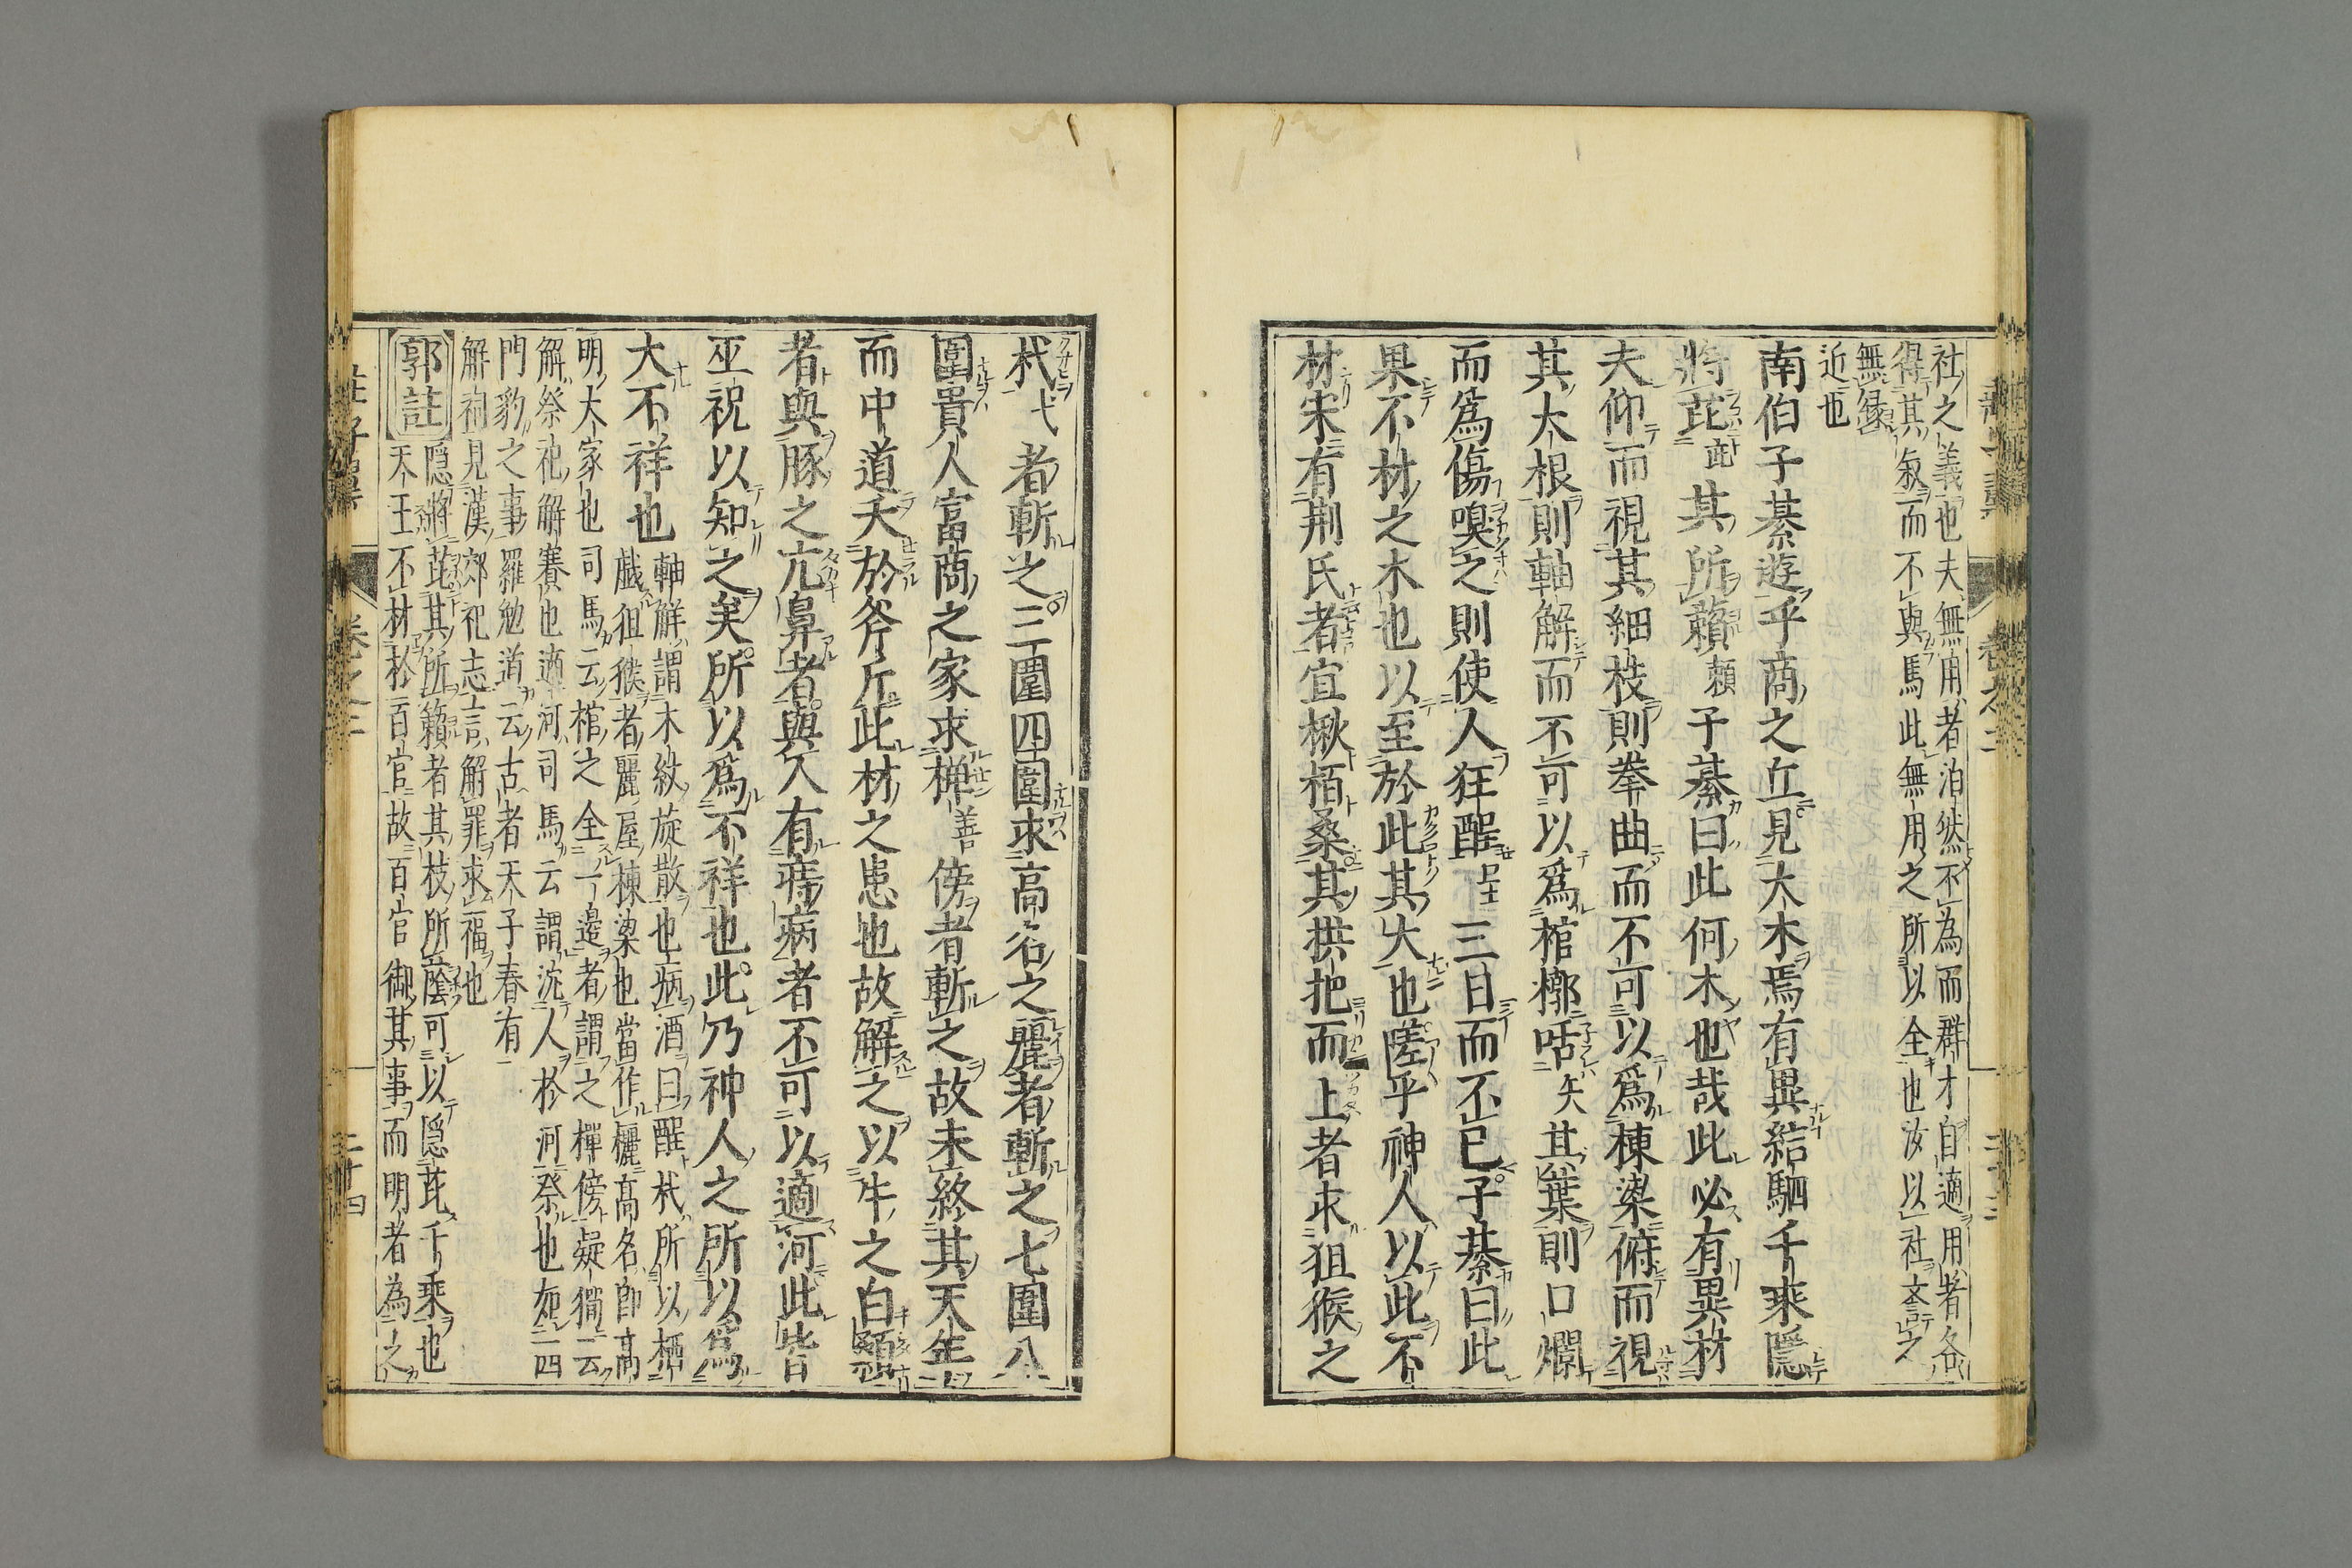 社之義也夫無用者泊然不為而群才自適用者各
得其叙而不與焉此無用之所以全也汝以社斎之
無縁
近也
南伯子綦遊乎商之丘見大木焉有異結駟千乗隠
將芘 芘 其所藾 頼 子綦曰此何木也哉此必有異材
夫仰而視其細枝則拳曲而不可以爲棟梁俯而視
其大根則軸解而不可以爲棺槨咶 矢 其葉則口爛
而爲傷嗅之則使人狂酲 呈 三日而不已子綦曰此
果不材之木也以至於此其大也嗟乎神人以此不
材宋有荆氏者宜楸栢桑其拱把而上者求狙猴之
杙 弋 者斬之三圍四圍求高名之麗者斬之七圍八
圍貴人富商之家求樿 善 傍者斬之故未終其天年
而中道夭於斧斤此材之患也故解之以牛之白顙
者與豚之亢鼻者與人有痔病者不可以適河此皆
巫祝以知之矣所以爲不祥也此乃神人之所以爲
大不祥也
軸解謂木紋旋散也病酒曰酲杙所以栖
戯狙猴者麗屋棟梁也當作欐高名卽高
明大家也司馬云棺之全一邉者謂之樿傍
解祭祀解賽也適河司馬云謂沈人於河祭也
門豹之事羅勉道云古者天子春有
解祠見漢郊祀志言解罪求福也
郭註
隠將芘其所籟者其枝所䕃可以隠芘千乗也
夫王不材於百官故百官御其事而明者為之
荘子翼
卷之二
二十四